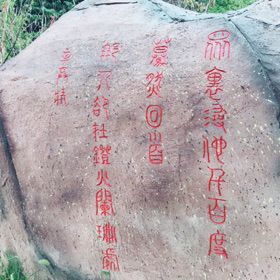 众裏尋他千百度
驀然回首
那人卻在燈火闌珊處
辛棄疾